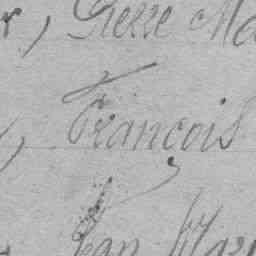 r, Pierre Ma
, François
Jean Mari